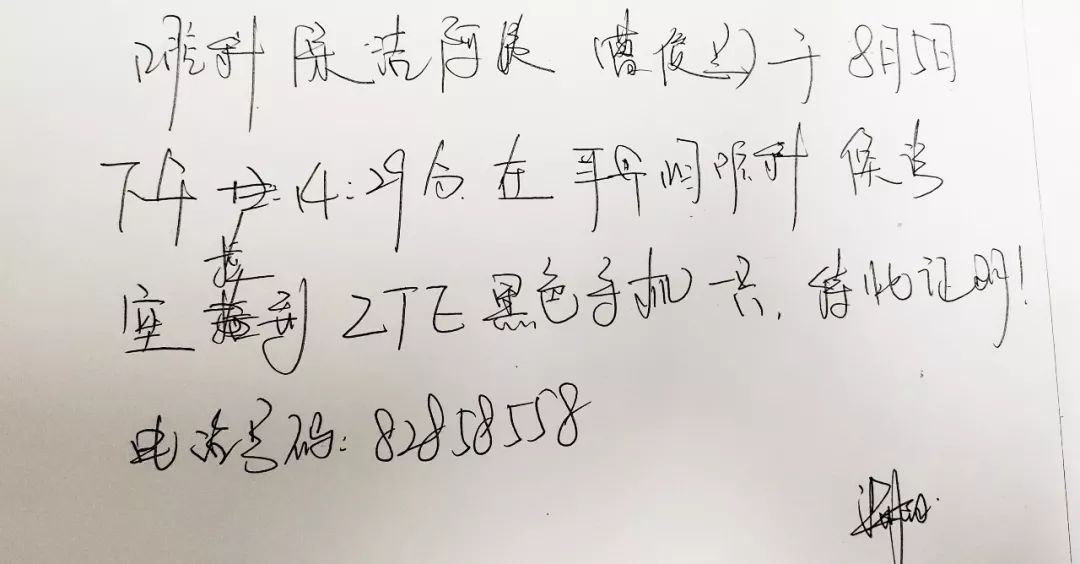 眼科保洁阿姨（曹俊兰）于8月5日
下午14:29分在平丹阳眼科候诊
座拾到ZTE黑色手机一只，特此证明！
电话号码：82858558